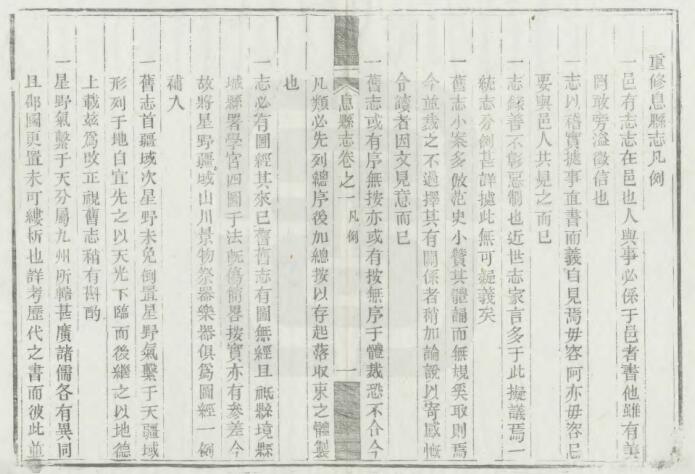 重修息縣志凡例
一邑有志志在邑也人與事必係于邑者書他雖有美
罔敢旁溢徵信也
一志以稽實據事直書而義自見焉毋容阿亦毋容忌
要與邑人共見之而已
一志錄善不彰惡制也近世志家言多于此擬議焉一
統志分例甚詳據此無可疑義矣
一舊志小案多倣范史小贊其體韻而無規奚取則焉
今並裁之不過擇其有關係者稍加論說以寄感慨
令讀者因文見意而已
一舊志或有序無按亦或有按無序于體裁恐不合今
凡類必先列總序後加總按以存起落收束之體製
也
息縣志卷之一
凡例
一
一志必有圖經其來已舊舊志有圖無經且祗縣境縣
城縣署學宮四圖于法既傷簡畧按實亦有參差今
故將星野疆域山川景物祭器樂器俱為圖經一例
補入
一舊志首疆域次星野未免倒置星野氣繫于天疆域
形列于地自宜先之以天光下臨而後繼之以地德
上載玆為改正視舊志稍有斟酌
一星野氣繫于天分屬九州所轄甚廣諸儒各有異同
且郡國更置未可縷析也詳考歷代之書而彼此並